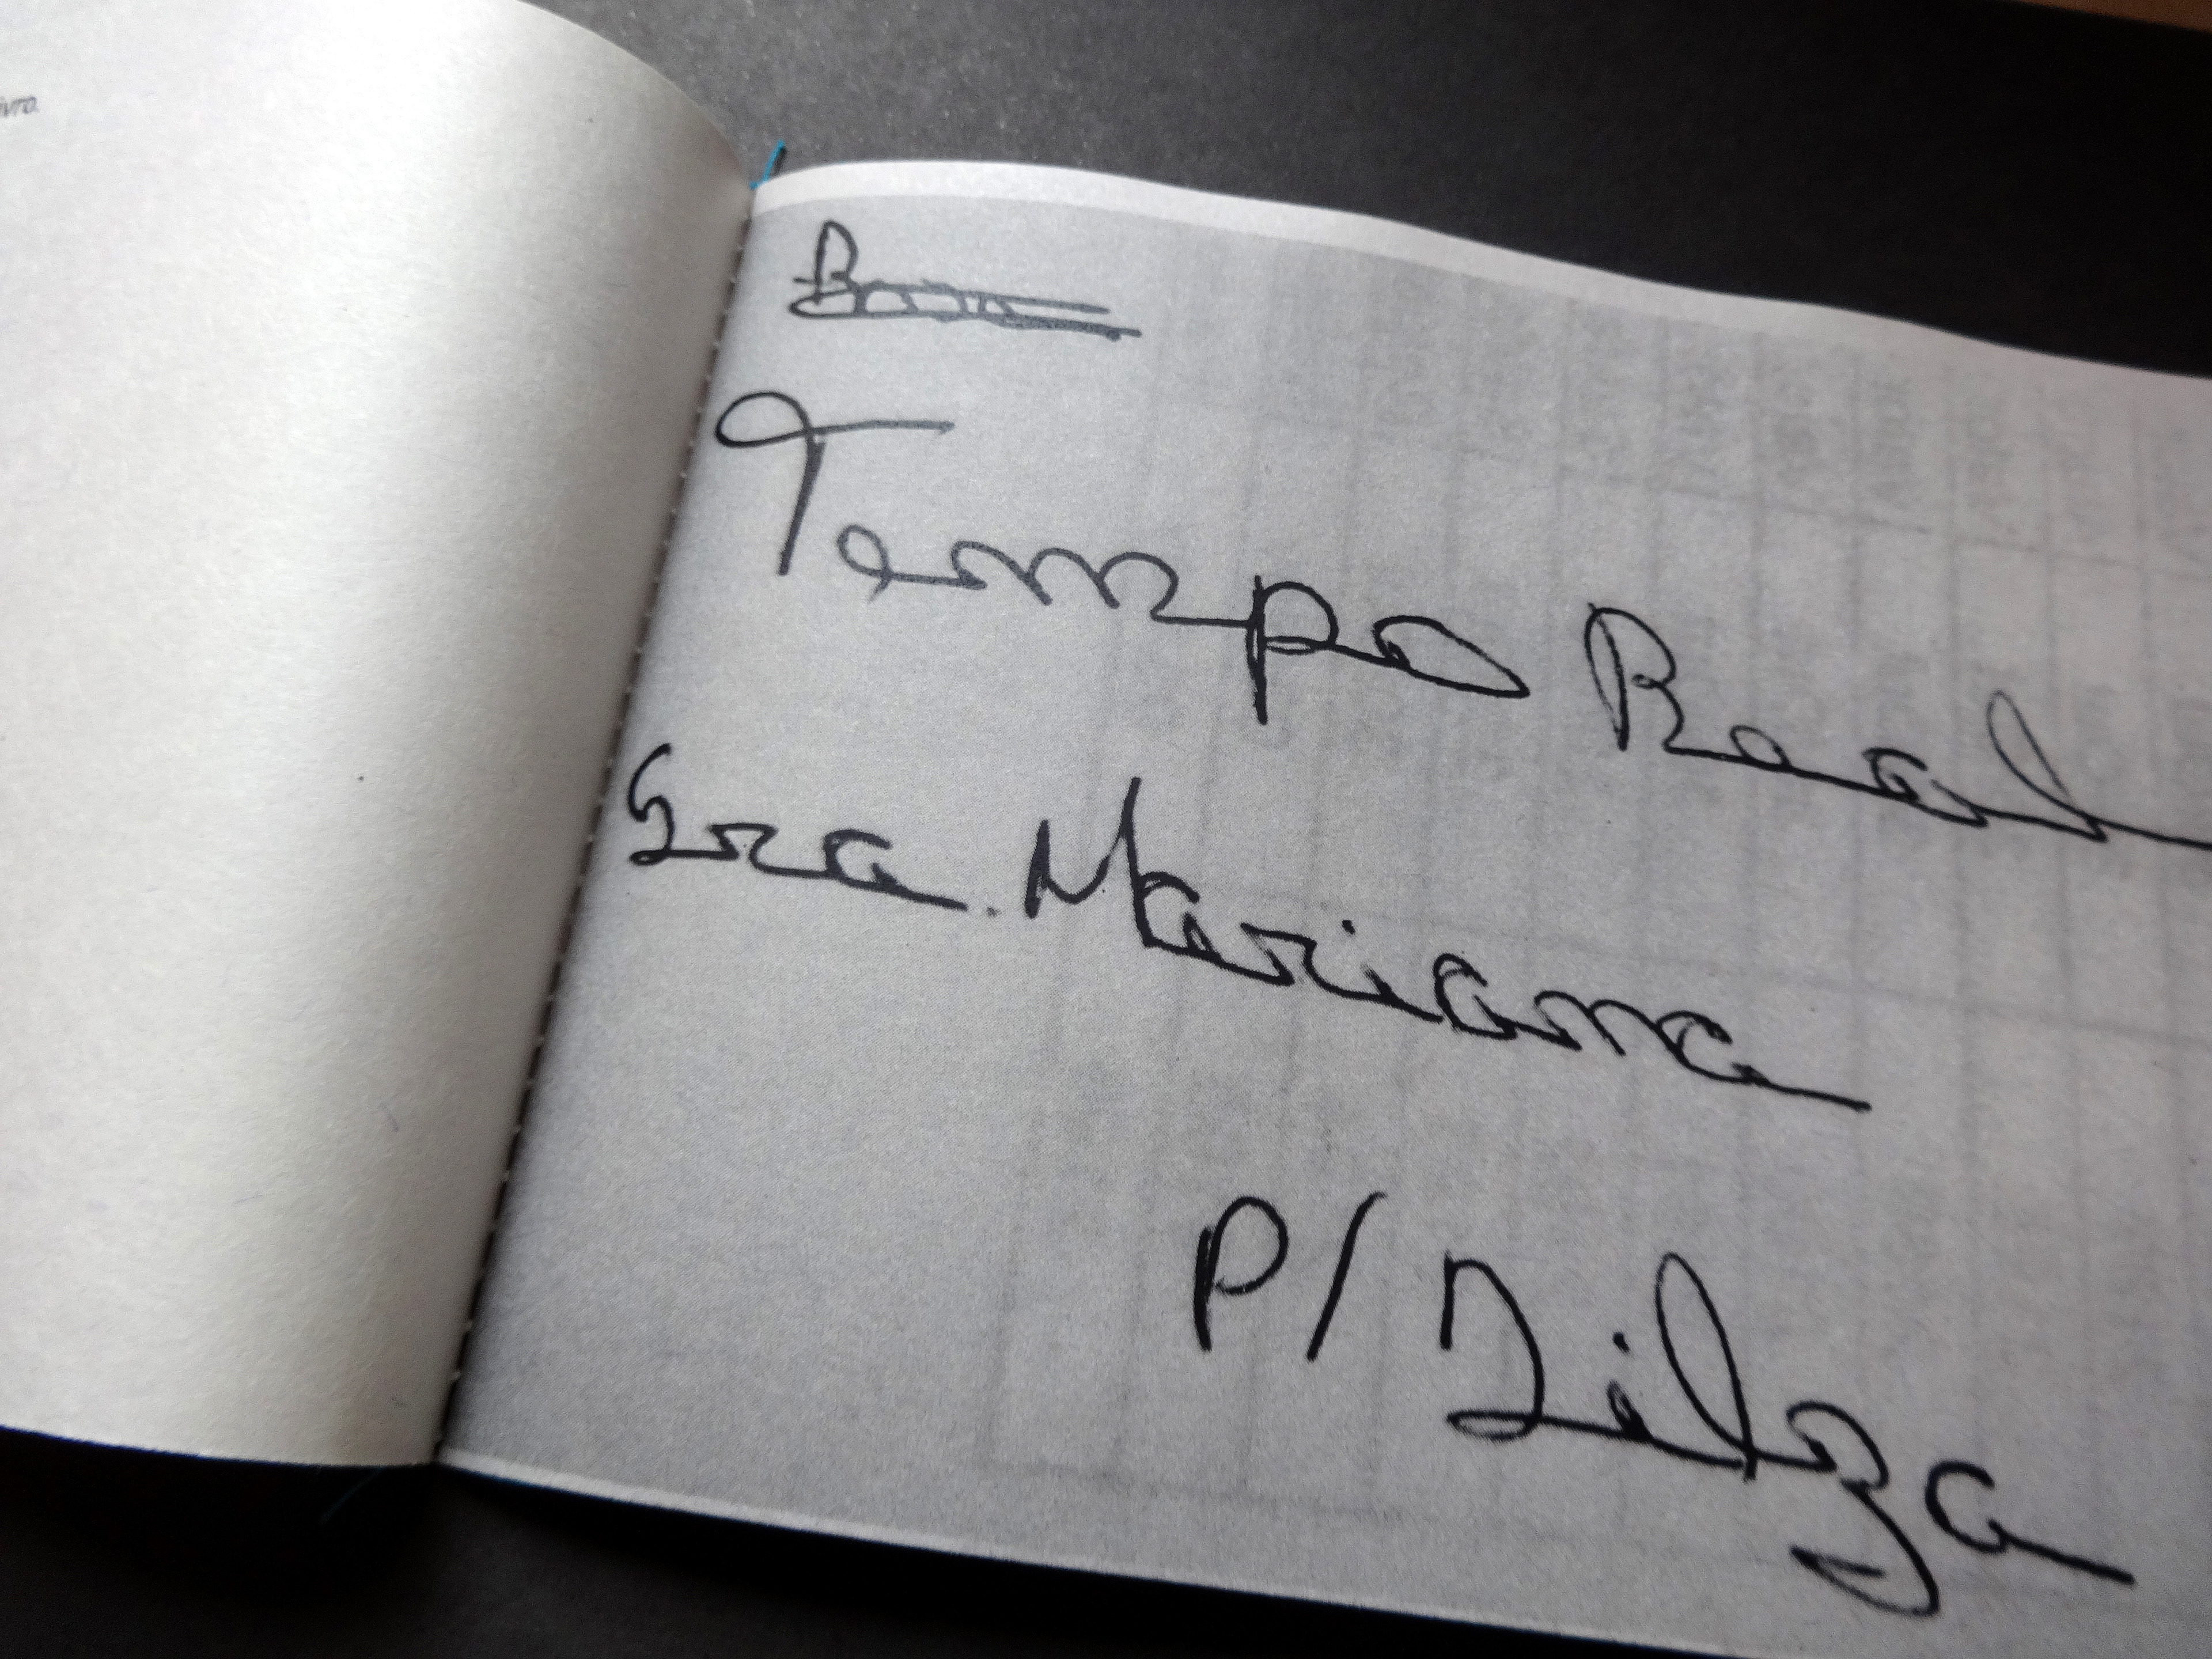 Tempo Real
Sra. Mariana
P/ Zilza